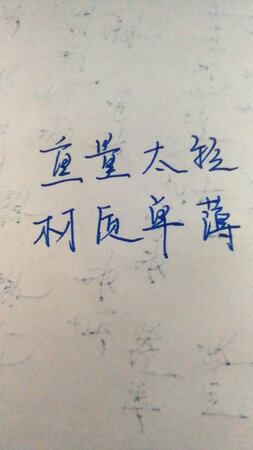 重量太轻
材质单薄